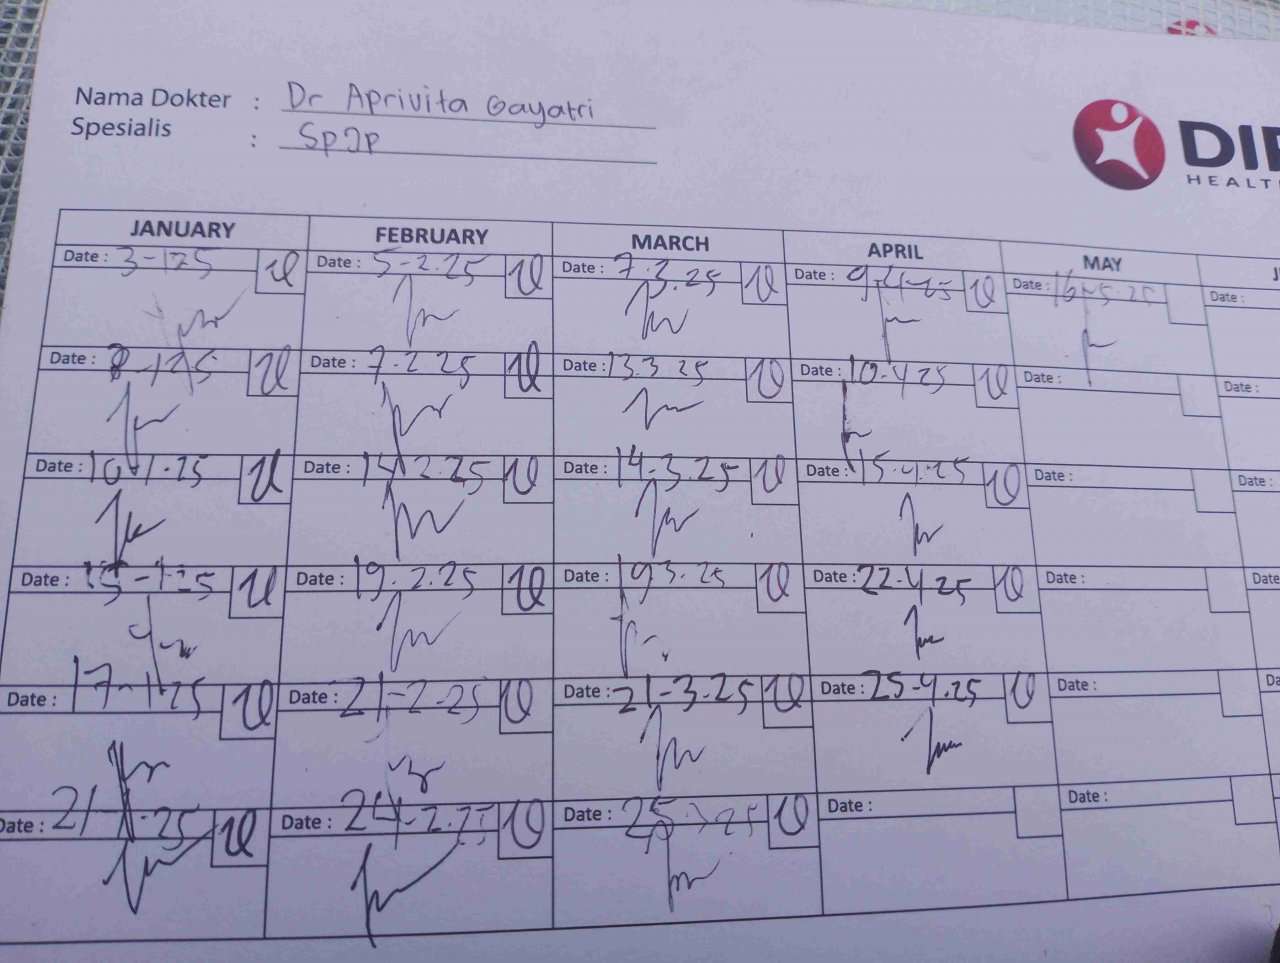 Nama Dokter : Dr Aprivita Gayatri
Spesialis : SpJp
DI
HEALT
JANUARY FEBRUARY MARCH APRIL MAY J
Date : 3-1-25 Date : 5-2.25 Date : 7.3.25 Date : 9.4-25 Date : 16-5.25 Date :
Date : 8-1-25 Date : 7-2.25 Date : 13.3.25 Date : 10.4.25 Date : Date :
Date : 10.1.25 Date : 14.2.25 Date : 14.3.25 Date : 15.4.25 Date : Date :
Date : 15-1-25 Date : 19.2.25 Date : 19.3.25 Date : 22.4.25 Date : Date
Date : 17-1-25 Date : 21-2-25 Date : 21-3-25 Date : 25-4.25 Date : Da
Date : 21-1-25 Date : 24-2.25 Date : 25 25 Date : Date :